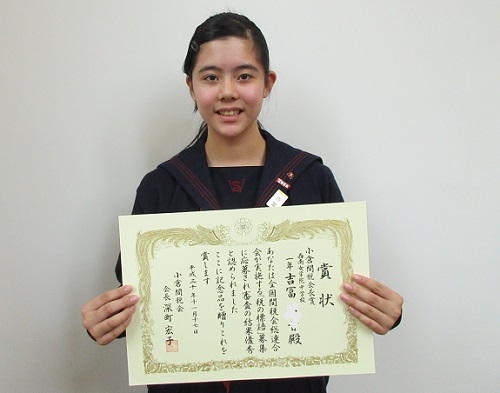 賞状
小倉間税会長賞
西南女学院中学校
一年 吉冨 殿
あなたは全国間税会総連合
会が実施する「税の標語」募集
に応募され審査の結果優秀
と認められました
ここに記念品を贈りこれを
賞します
平成三十年十一月十七日
小倉間税会
会長 深町 宏子